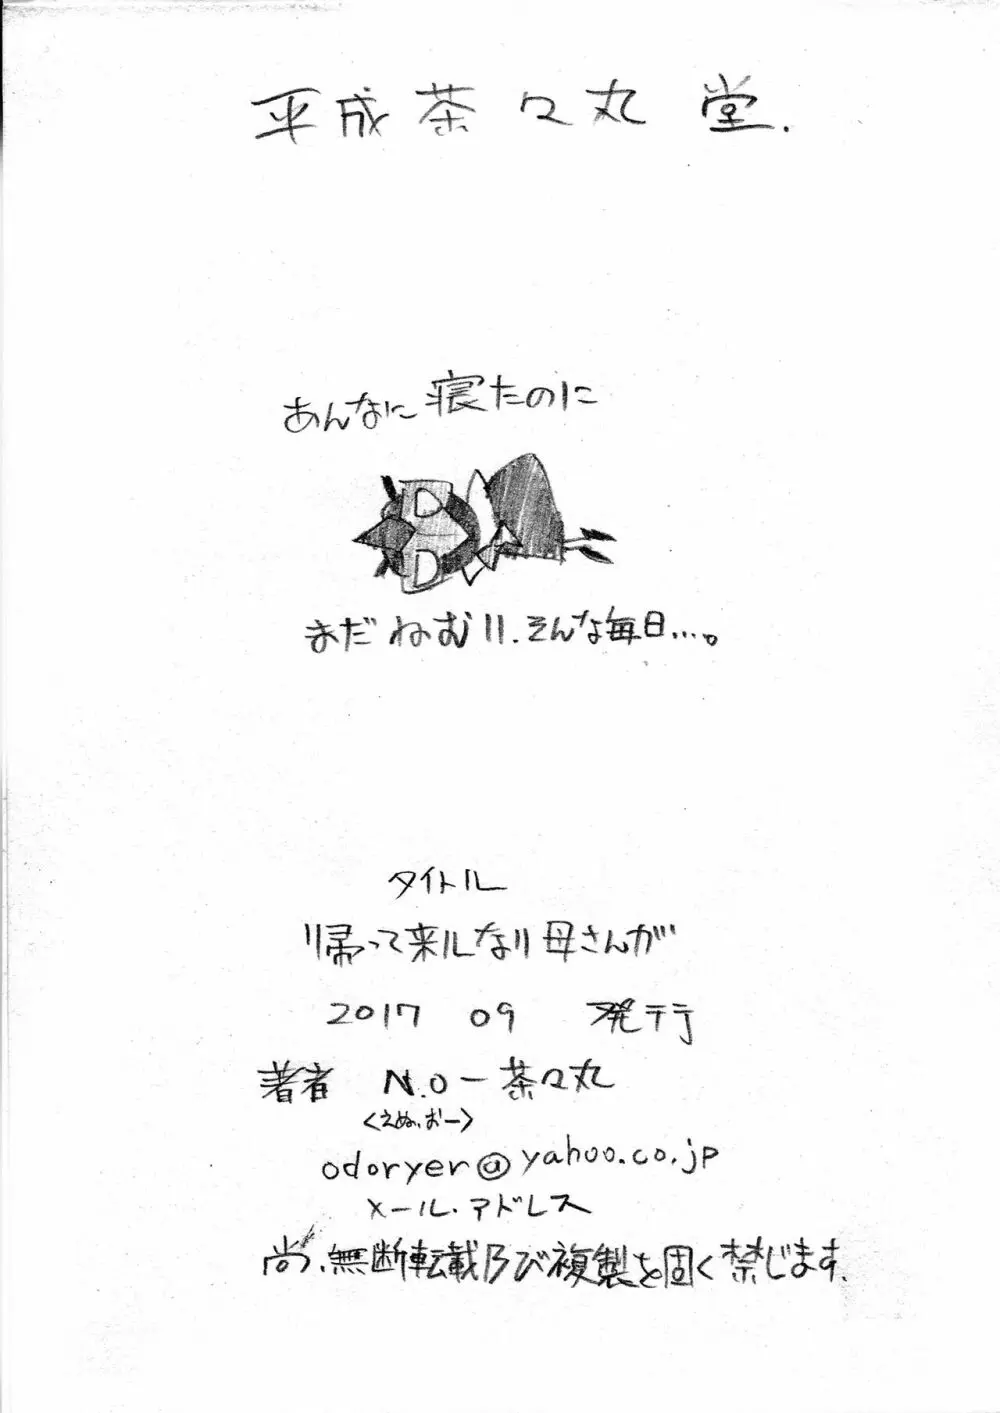 平成茶々丸堂.
あんなに寝たのに
まだねむリ.そんな毎日…。
タイトル
帰って来ルなり母さんが
2017 09 発行
著者 N.O－茶々丸
<えぬ.おー>
odoryer@yahoo.co.jp
メール.アドレス
尚、無断転載及び複製を固く禁じます.